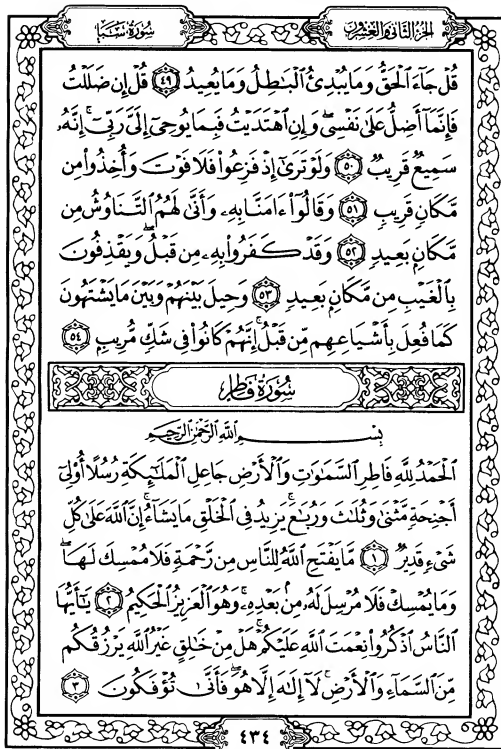 سُورَةُ سَبَإٍ
الجُزْءُ الثَّانِي وَالعِشْرُونَ
قُلْ جَآءَ ٱلْحَقُّ وَمَا يُبْدِئُ ٱلْبَٰطِلُ وَمَا يُعِيدُ ٤٩ قُلْ إِن ضَلَلْتُ
فَإِنَّمَآ أَضِلُّ عَلَىٰ نَفْسِى وَإِنِ ٱهْتَدَيْتُ فَبِمَا يُوحِىٓ إِلَىَّ رَبِّىٓ ۚ إِنَّهُۥ
سَمِيعٌ قَرِيبٌ ٥٠ وَلَوْ تَرَىٰٓ إِذْ فَزِعُوا۟ فَلَا فَوْتَ وَأُخِذُوا۟ مِن
مَّكَانٍ قَرِيبٍ ٥١ وَقَالُوٓا۟ ءَامَنَّا بِهِۦ وَأَنَّىٰ لَهُمُ ٱلتَّنَاوُشُ مِن
مَّكَانٍۭ بَعِيدٍ ٥٢ وَقَدْ كَفَرُوا۟ بِهِۦ مِن قَبْلُ ۖ وَيَقْذِفُونَ
بِٱلْغَيْبِ مِن مَّكَانٍۭ بَعِيدٍ ٥٣ وَحِيلَ بَيْنَهُمْ وَبَيْنَ مَا يَشْتَهُونَ
كَمَا فُعِلَ بِأَشْيَاعِهِم مِّن قَبْلُ ۚ إِنَّهُمْ كَانُوا۟ فِى شَكٍّ مُّرِيبٍۭ ٥٤
سُورَةُ فَاطِرٍ
بِسْمِ ٱللَّهِ ٱلرَّحْمَٰنِ ٱلرَّحِيمِ
ٱلْحَمْدُ لِلَّهِ فَاطِرِ ٱلسَّمَٰوَٰتِ وَٱلْأَرْضِ جَاعِلِ ٱلْمَلَٰٓئِكَةِ رُسُلًا أُو۟لِىٓ
أَجْنِحَةٍ مَّثْنَىٰ وَثُلَٰثَ وَرُبَٰعَ ۚ يَزِيدُ فِى ٱلْخَلْقِ مَا يَشَآءُ ۚ إِنَّ ٱللَّهَ عَلَىٰ كُلِّ
شَىْءٍ قَدِيرٌ ١ مَّا يَفْتَحِ ٱللَّهُ لِلنَّاسِ مِن رَّحْمَةٍ فَلَا مُمْسِكَ لَهَا ۖ
وَمَا يُمْسِكْ فَلَا مُرْسِلَ لَهُۥ مِنۢ بَعْدِهِۦ ۚ وَهُوَ ٱلْعَزِيزُ ٱلْحَكِيمُ ٢ يَٰٓأَيُّهَا
ٱلنَّاسُ ٱذْكُرُوا۟ نِعْمَتَ ٱللَّهِ عَلَيْكُمْ ۚ هَلْ مِنْ خَٰلِقٍ غَيْرُ ٱللَّهِ يَرْزُقُكُم
مِّنَ ٱلسَّمَآءِ وَٱلْأَرْضِ ۚ لَآ إِلَٰهَ إِلَّا هُوَ ۖ فَأَنَّىٰ تُؤْفَكُونَ ٣
٤٣٤